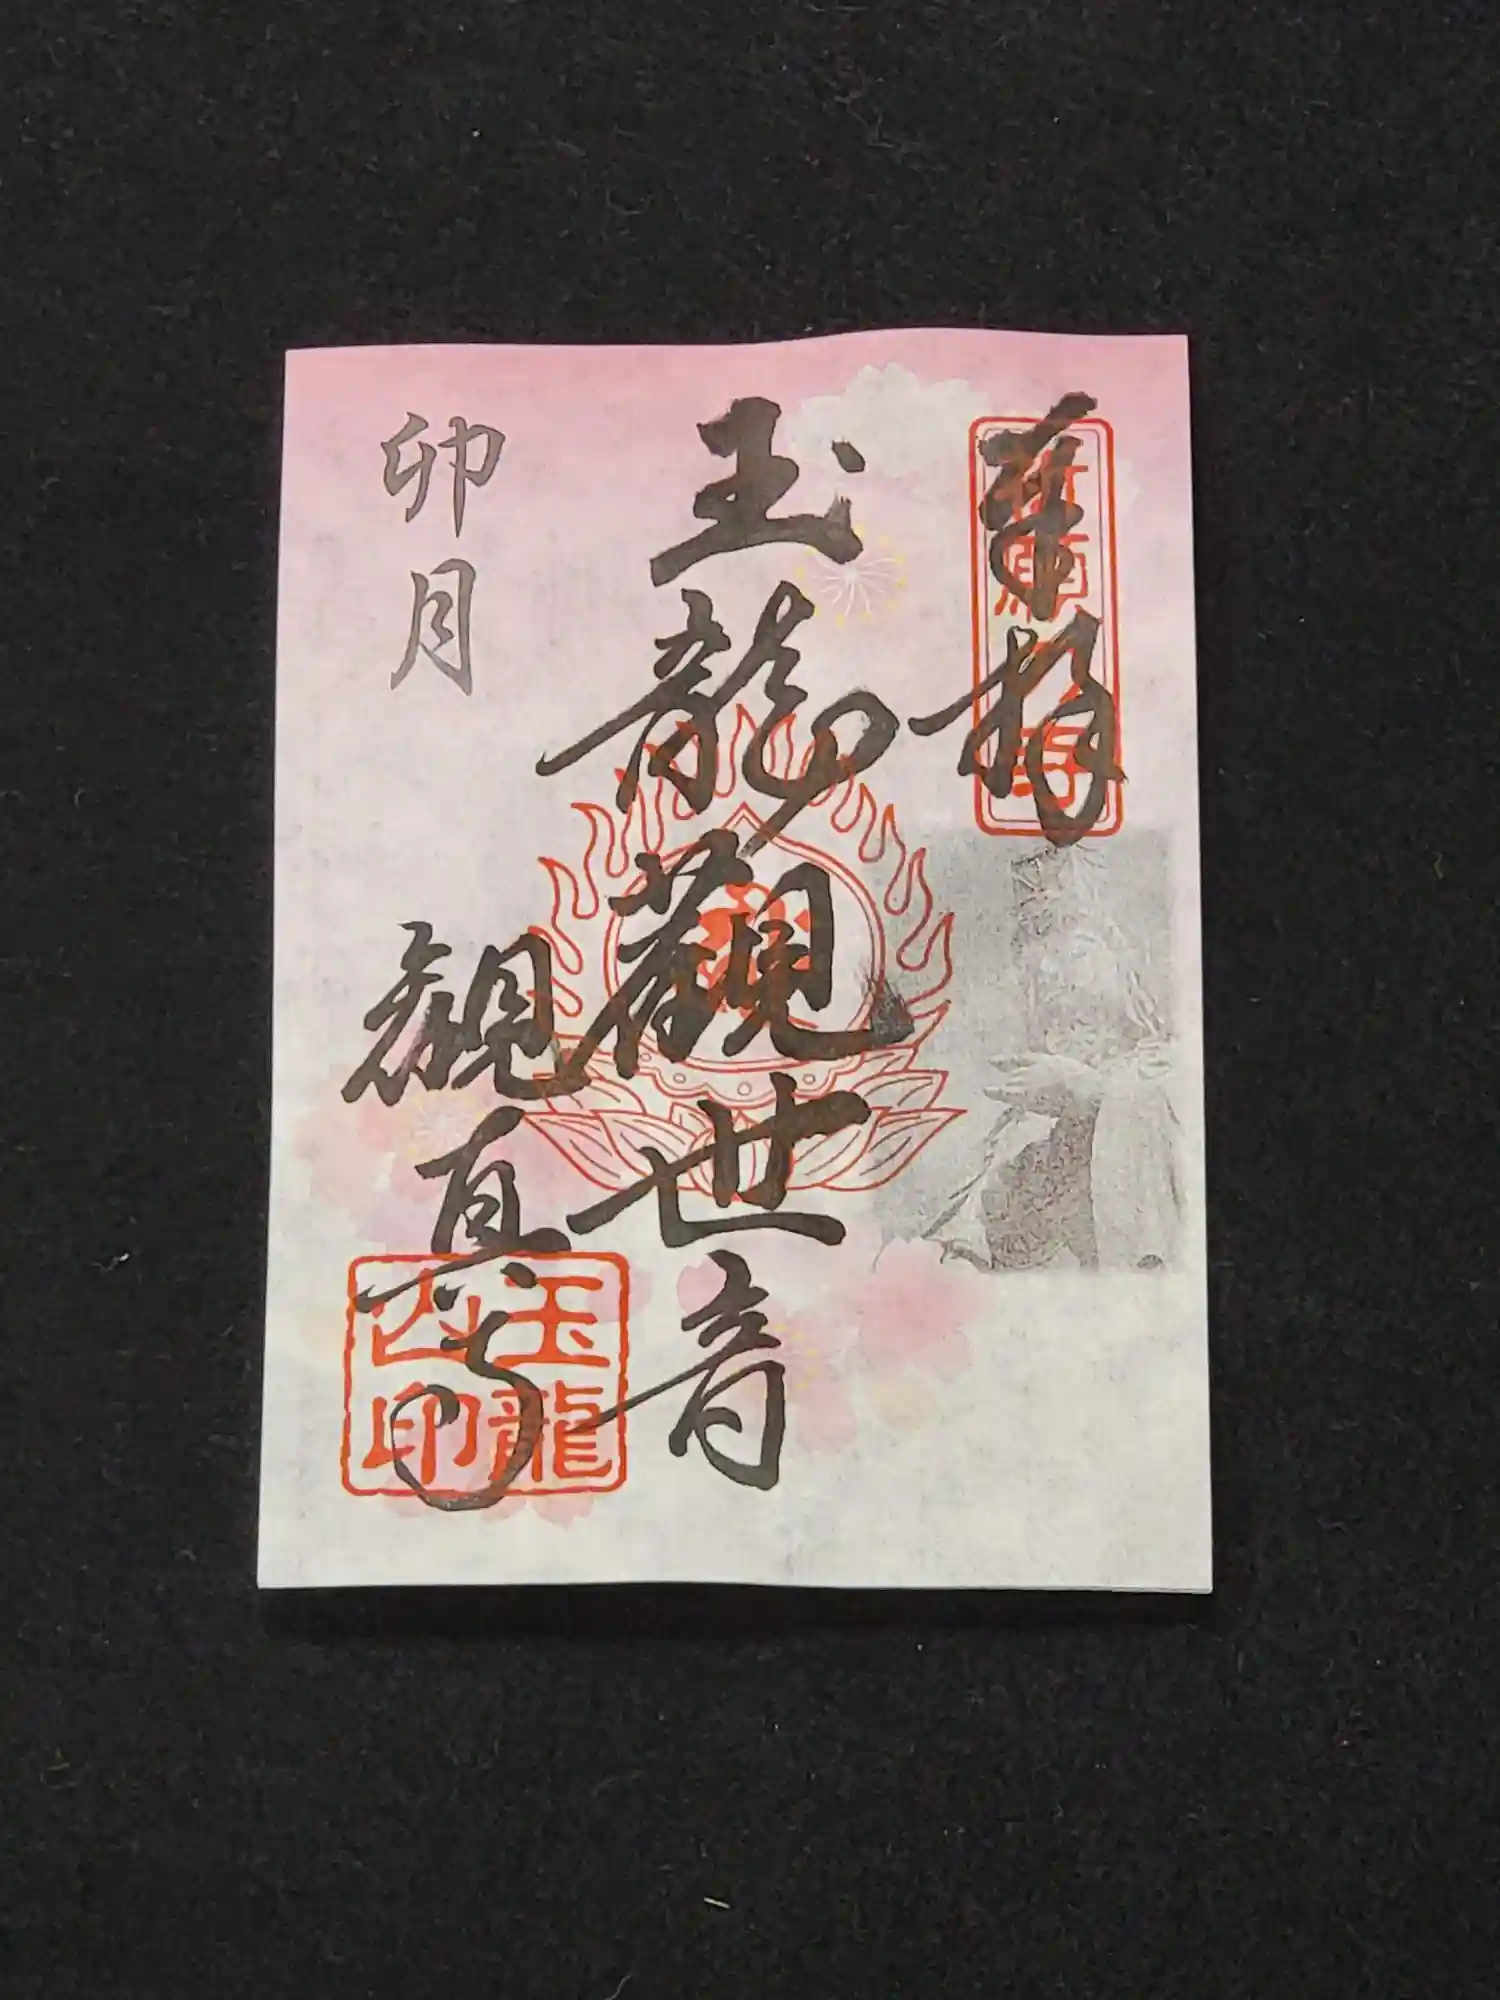 奉拝
玉龍觀世音
卯月
観
玉龍
山印